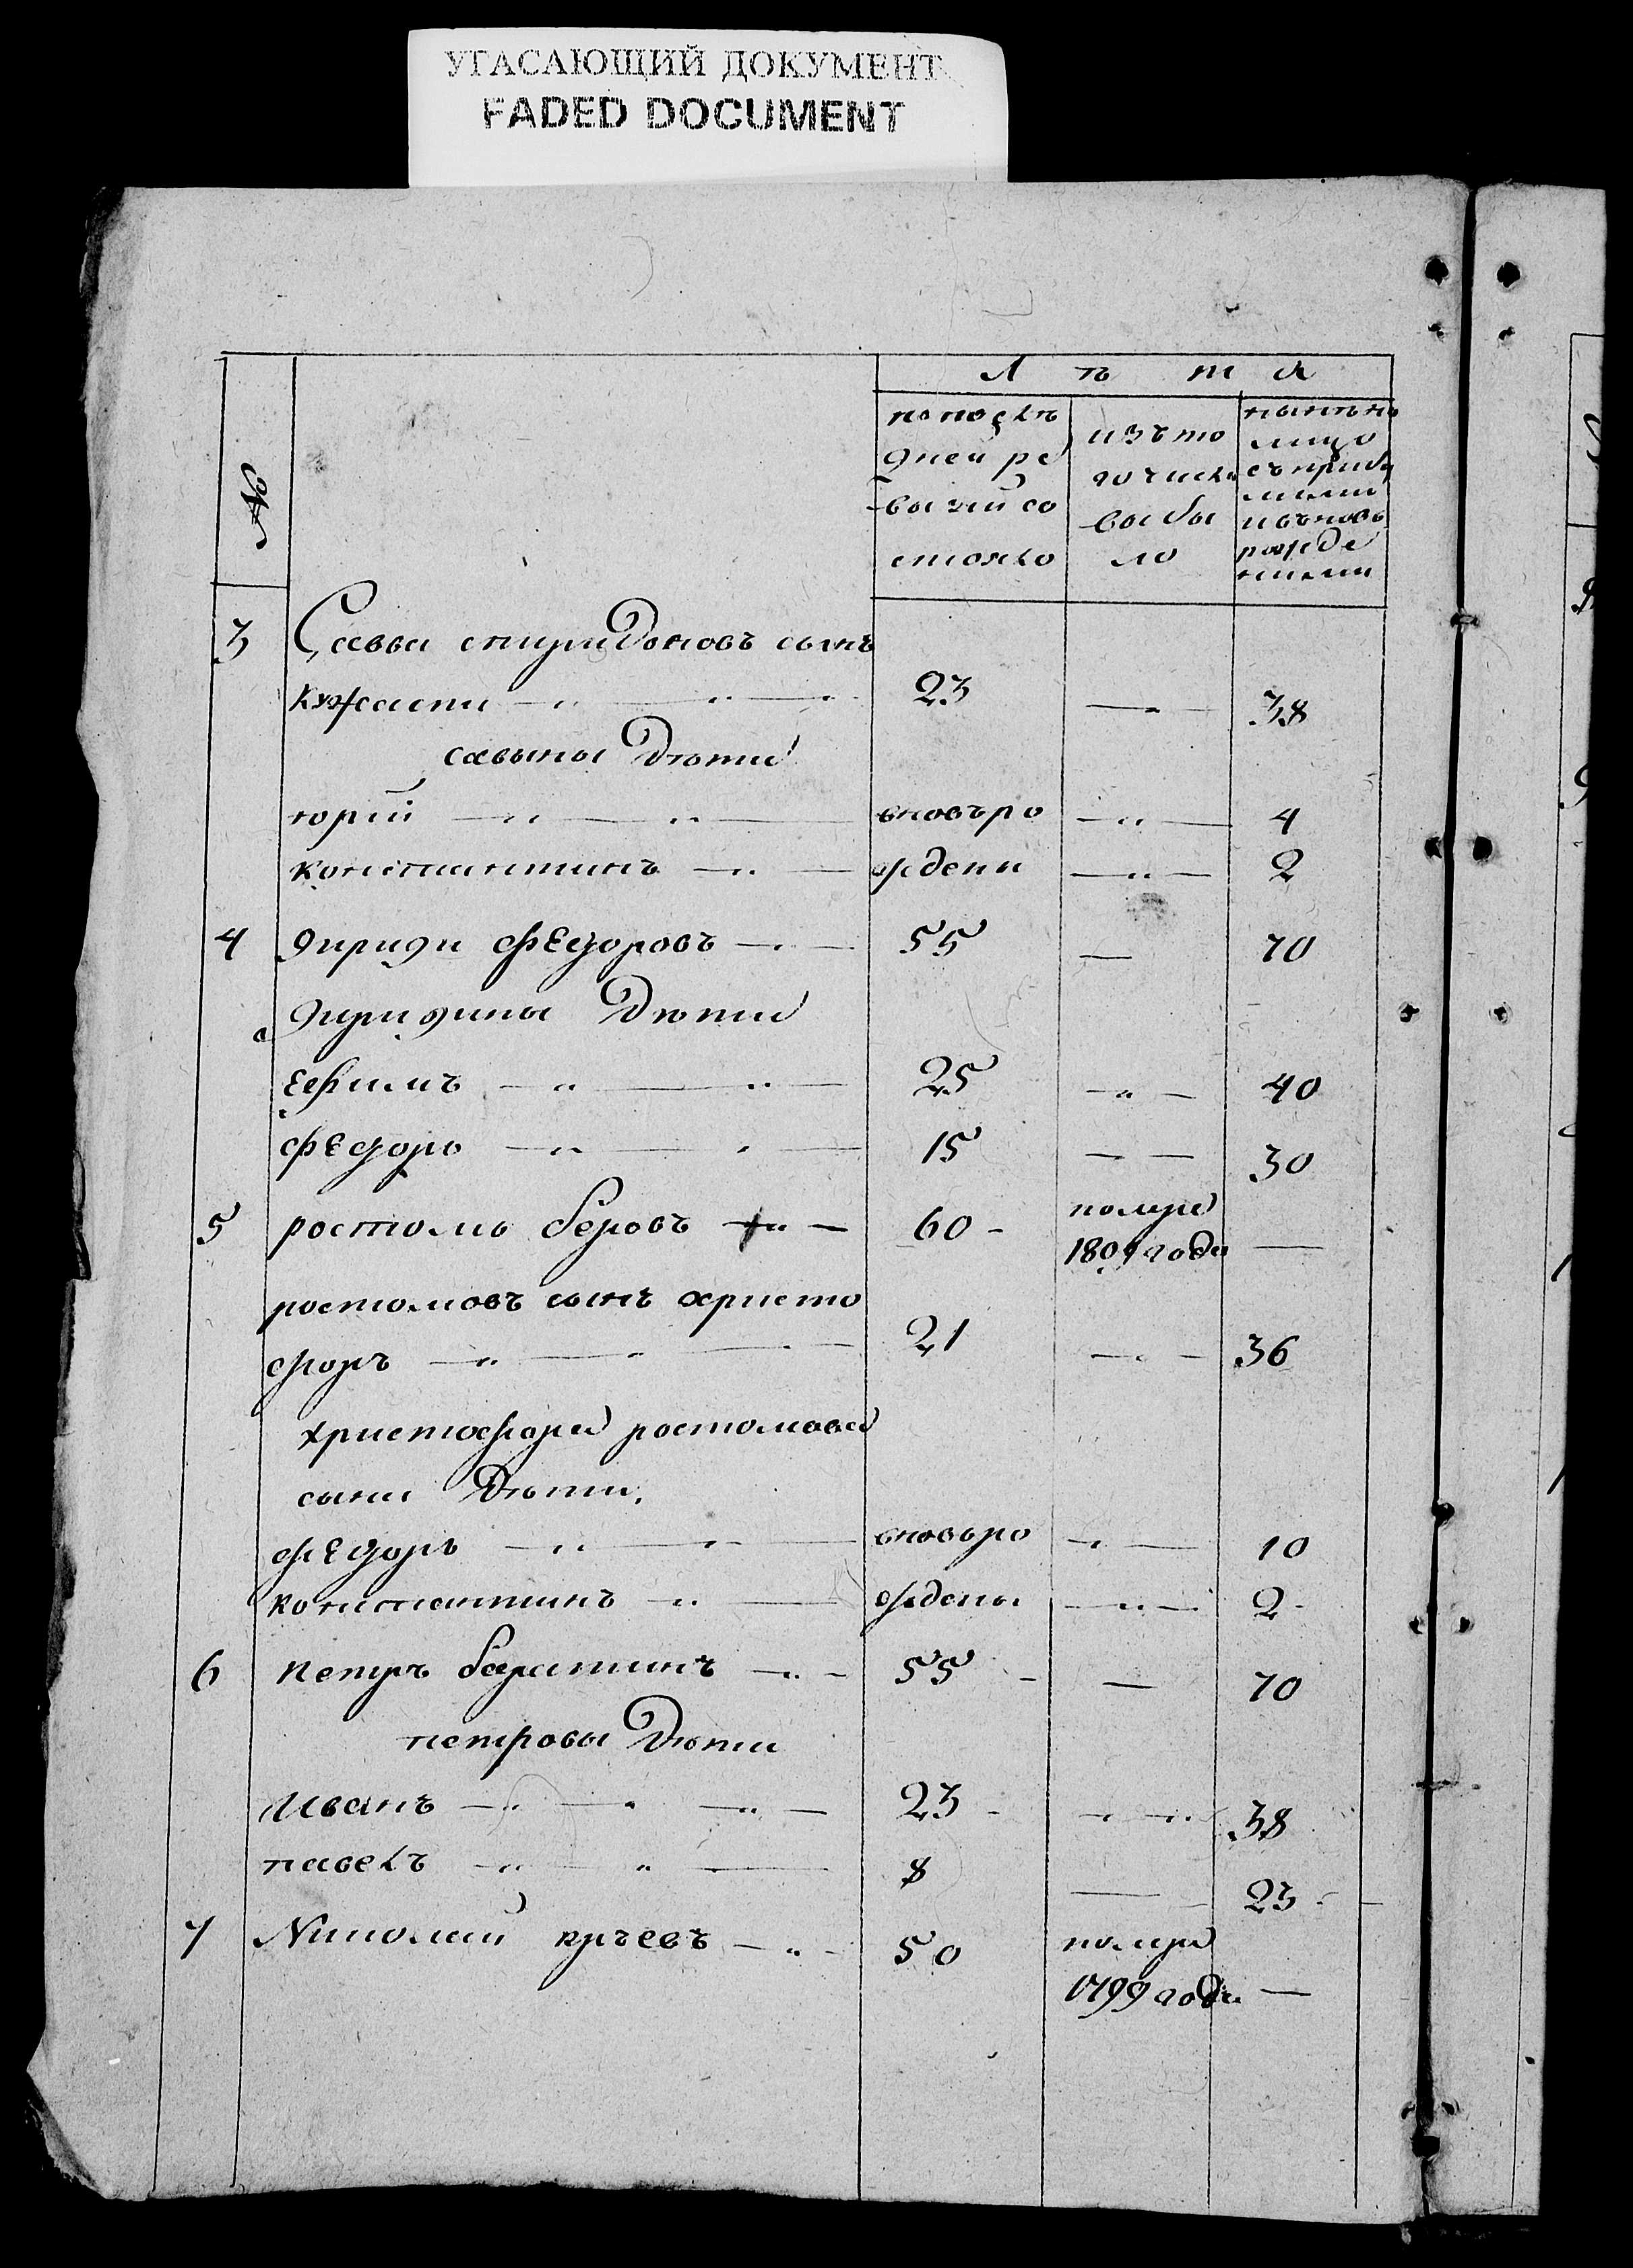 УГАСАЮЩИЙ ДОКУМЕНТ
FADED DOCUMENT
№
Лѣта
по послѣ
дней ре
визии со
стояло
изъ то
го числа
выбы
ло
нынѣ на
лицо
съ прибы
лыми
и вновь
рожде
нными
3 Савва спиридоновъ сынъ
23 — 38
савыны Дѣти
юрий вновь ро — 4
константинъ ждены — 2
4 федоровъ — 55 — 70
Дѣти
Ефимъ — 25 — 40
федоръ — 15 — 30
5 ростомъ беровъ — 60 — помре
1801 года —
ростомовъ сынъ христо
форъ — 21 — 36
христофора ростомова
сына Дѣти
федоръ — вновь ро — 10
константинъ — ждены — 2
6 петръ баратинъ — 55 — 70
петровы Дѣти
Иванъ — 23 — 38
павелъ — 8 — 23
7 Николай — 50 помре
1799 года —